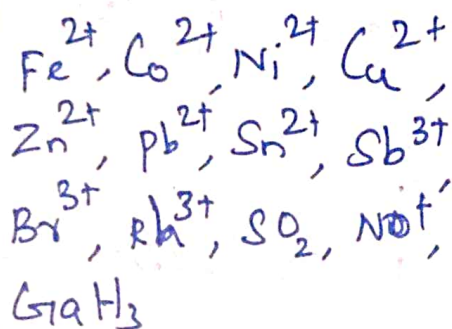 Fe²⁺, Co²⁺, Ni²⁺, Cu²⁺,
Zn²⁺, Pb²⁺, Sn²⁺, Sb³⁺,
Br³⁺, Rh³⁺, SO₂, NO⁺,
GaH₃